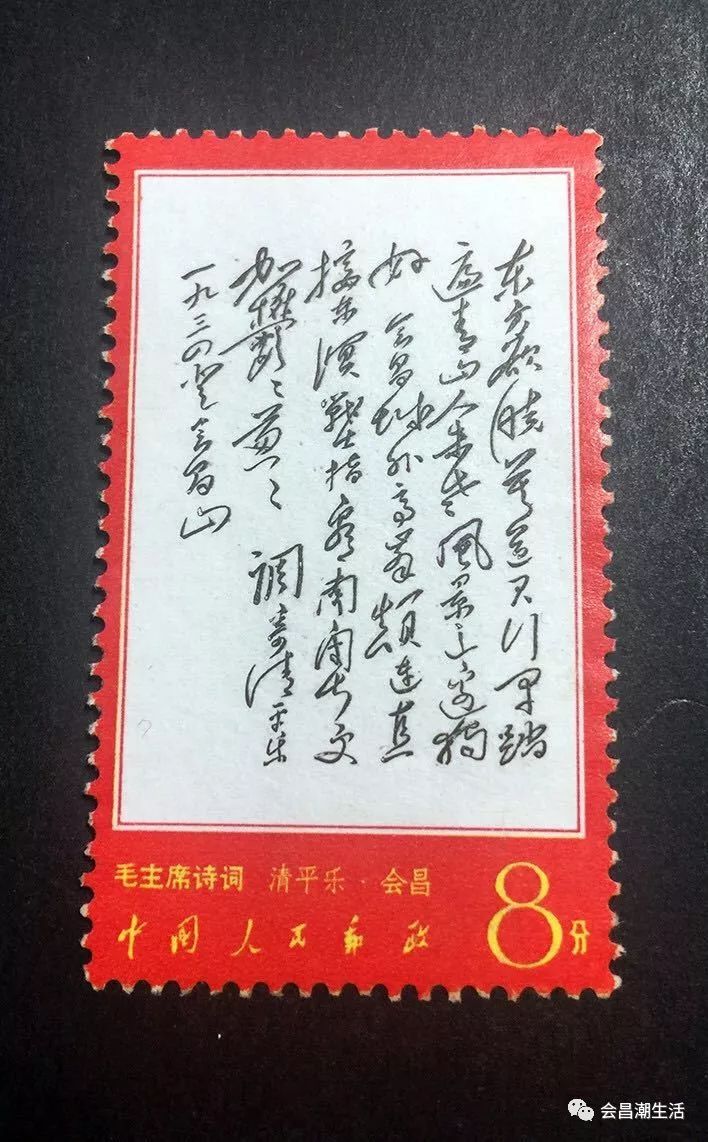 东方欲晓莫道君行早踏
遍青山人未老風景这边独
好 会昌城外高峯颠连直
接东溟戰士指看南粤更
加欝〻葱〻 调寄清平乐
一九三四登会昌山
毛主席诗词 清平乐·会昌
中国人民邮政
8分
会昌潮生活